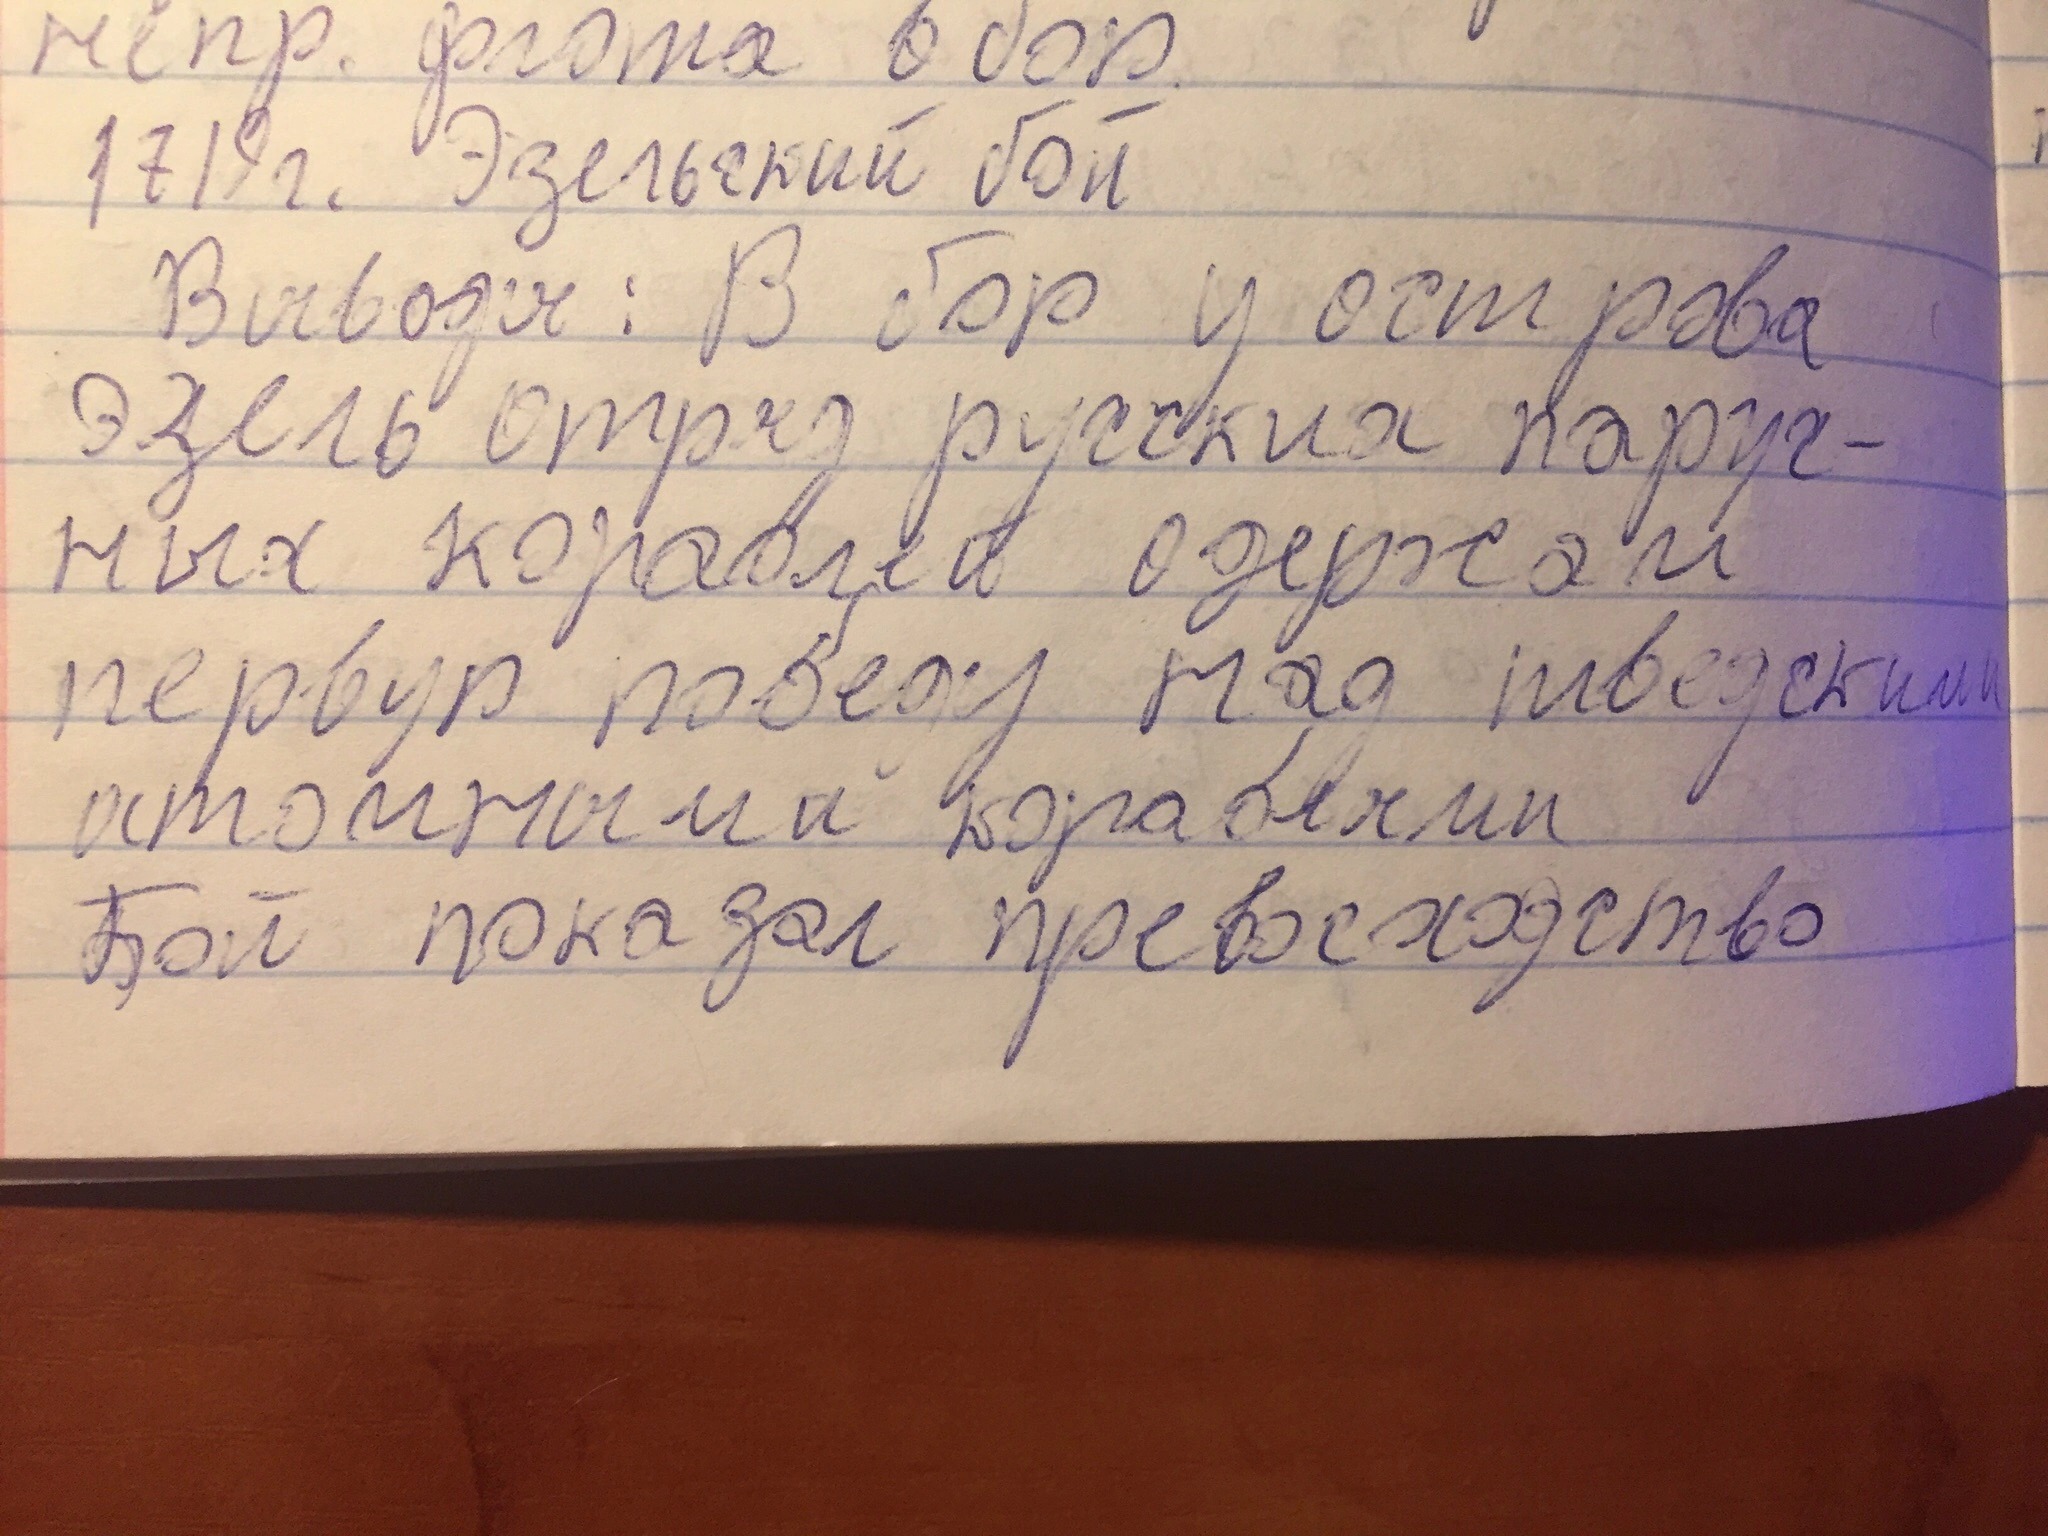 непр. флота в бою.
1719г. Эзельский бой
Выводы: В бою у острова
Эзель отряд русских парус-
ных кораблей одержал
первую победу над шведскими
атомными кораблями
Бой показал превосходство